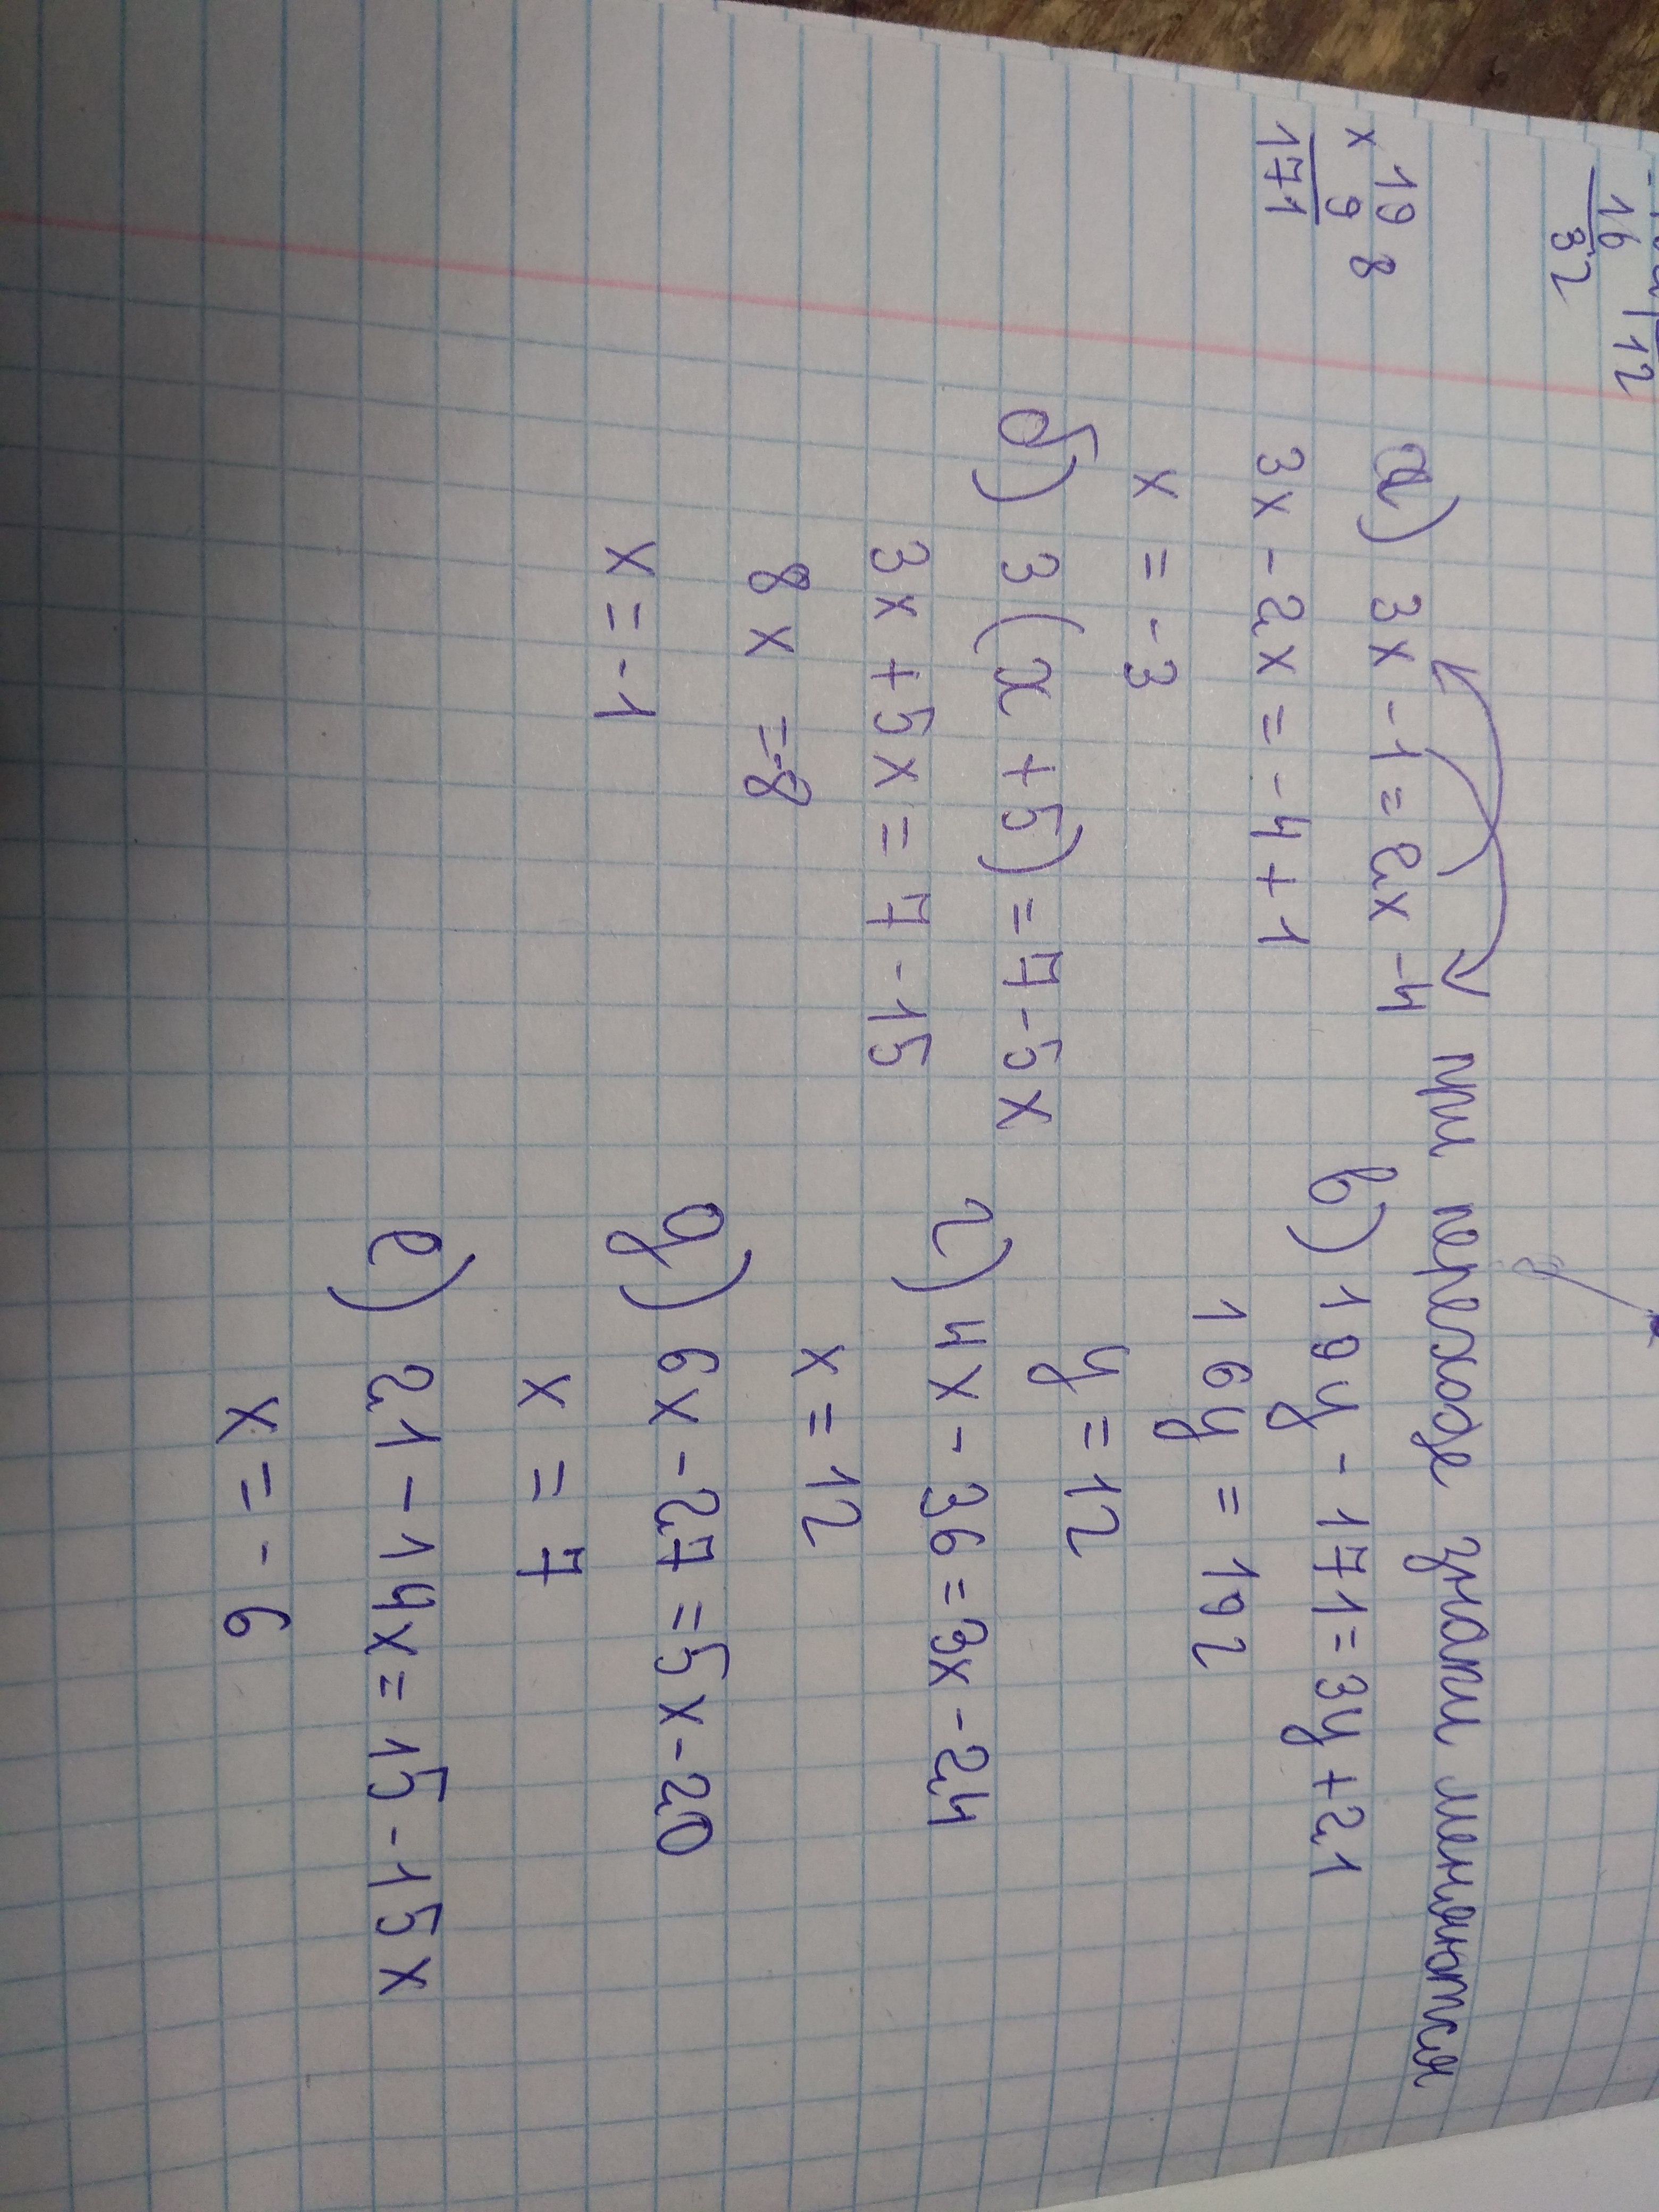 16 | 12
32
19 8
× 9
171
а) 3x - 1 = 2x - 4 при переходе знаки меняются
3x - 2x = - 4 + 1
x = - 3
б) 3(x + 5) = 7 - 5x
3x + 5x = 7 - 15
8x = -8
x = -1
в) 19y - 171 = 3y + 21
16y = 192
y = 12
г) 4x - 36 = 3x - 24
x = 12
д) 6x - 27 = 5x - 20
x = 7
е) 21 - 14x = 15 - 15x
x = - 6